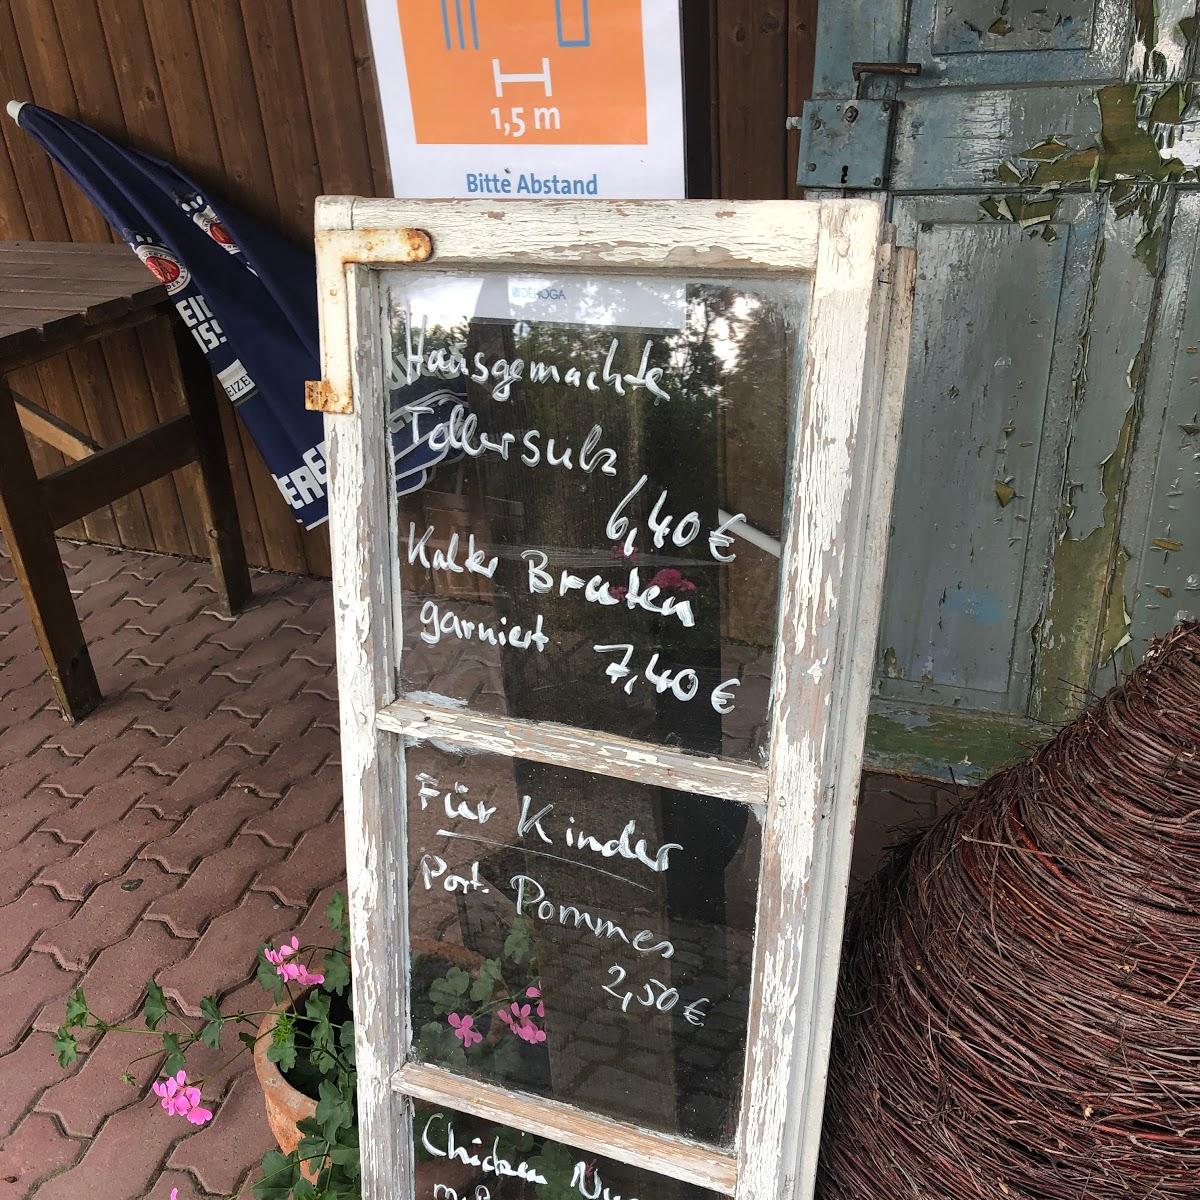 1,5 m
Bitte Abstand
DEHOGA
Hausgemachte
Tellersulz
6,40 €
Kalter Braten
garniert 7,40 €
Für Kinder
Port. Pommes
2,50 €
Chicken
EIZE